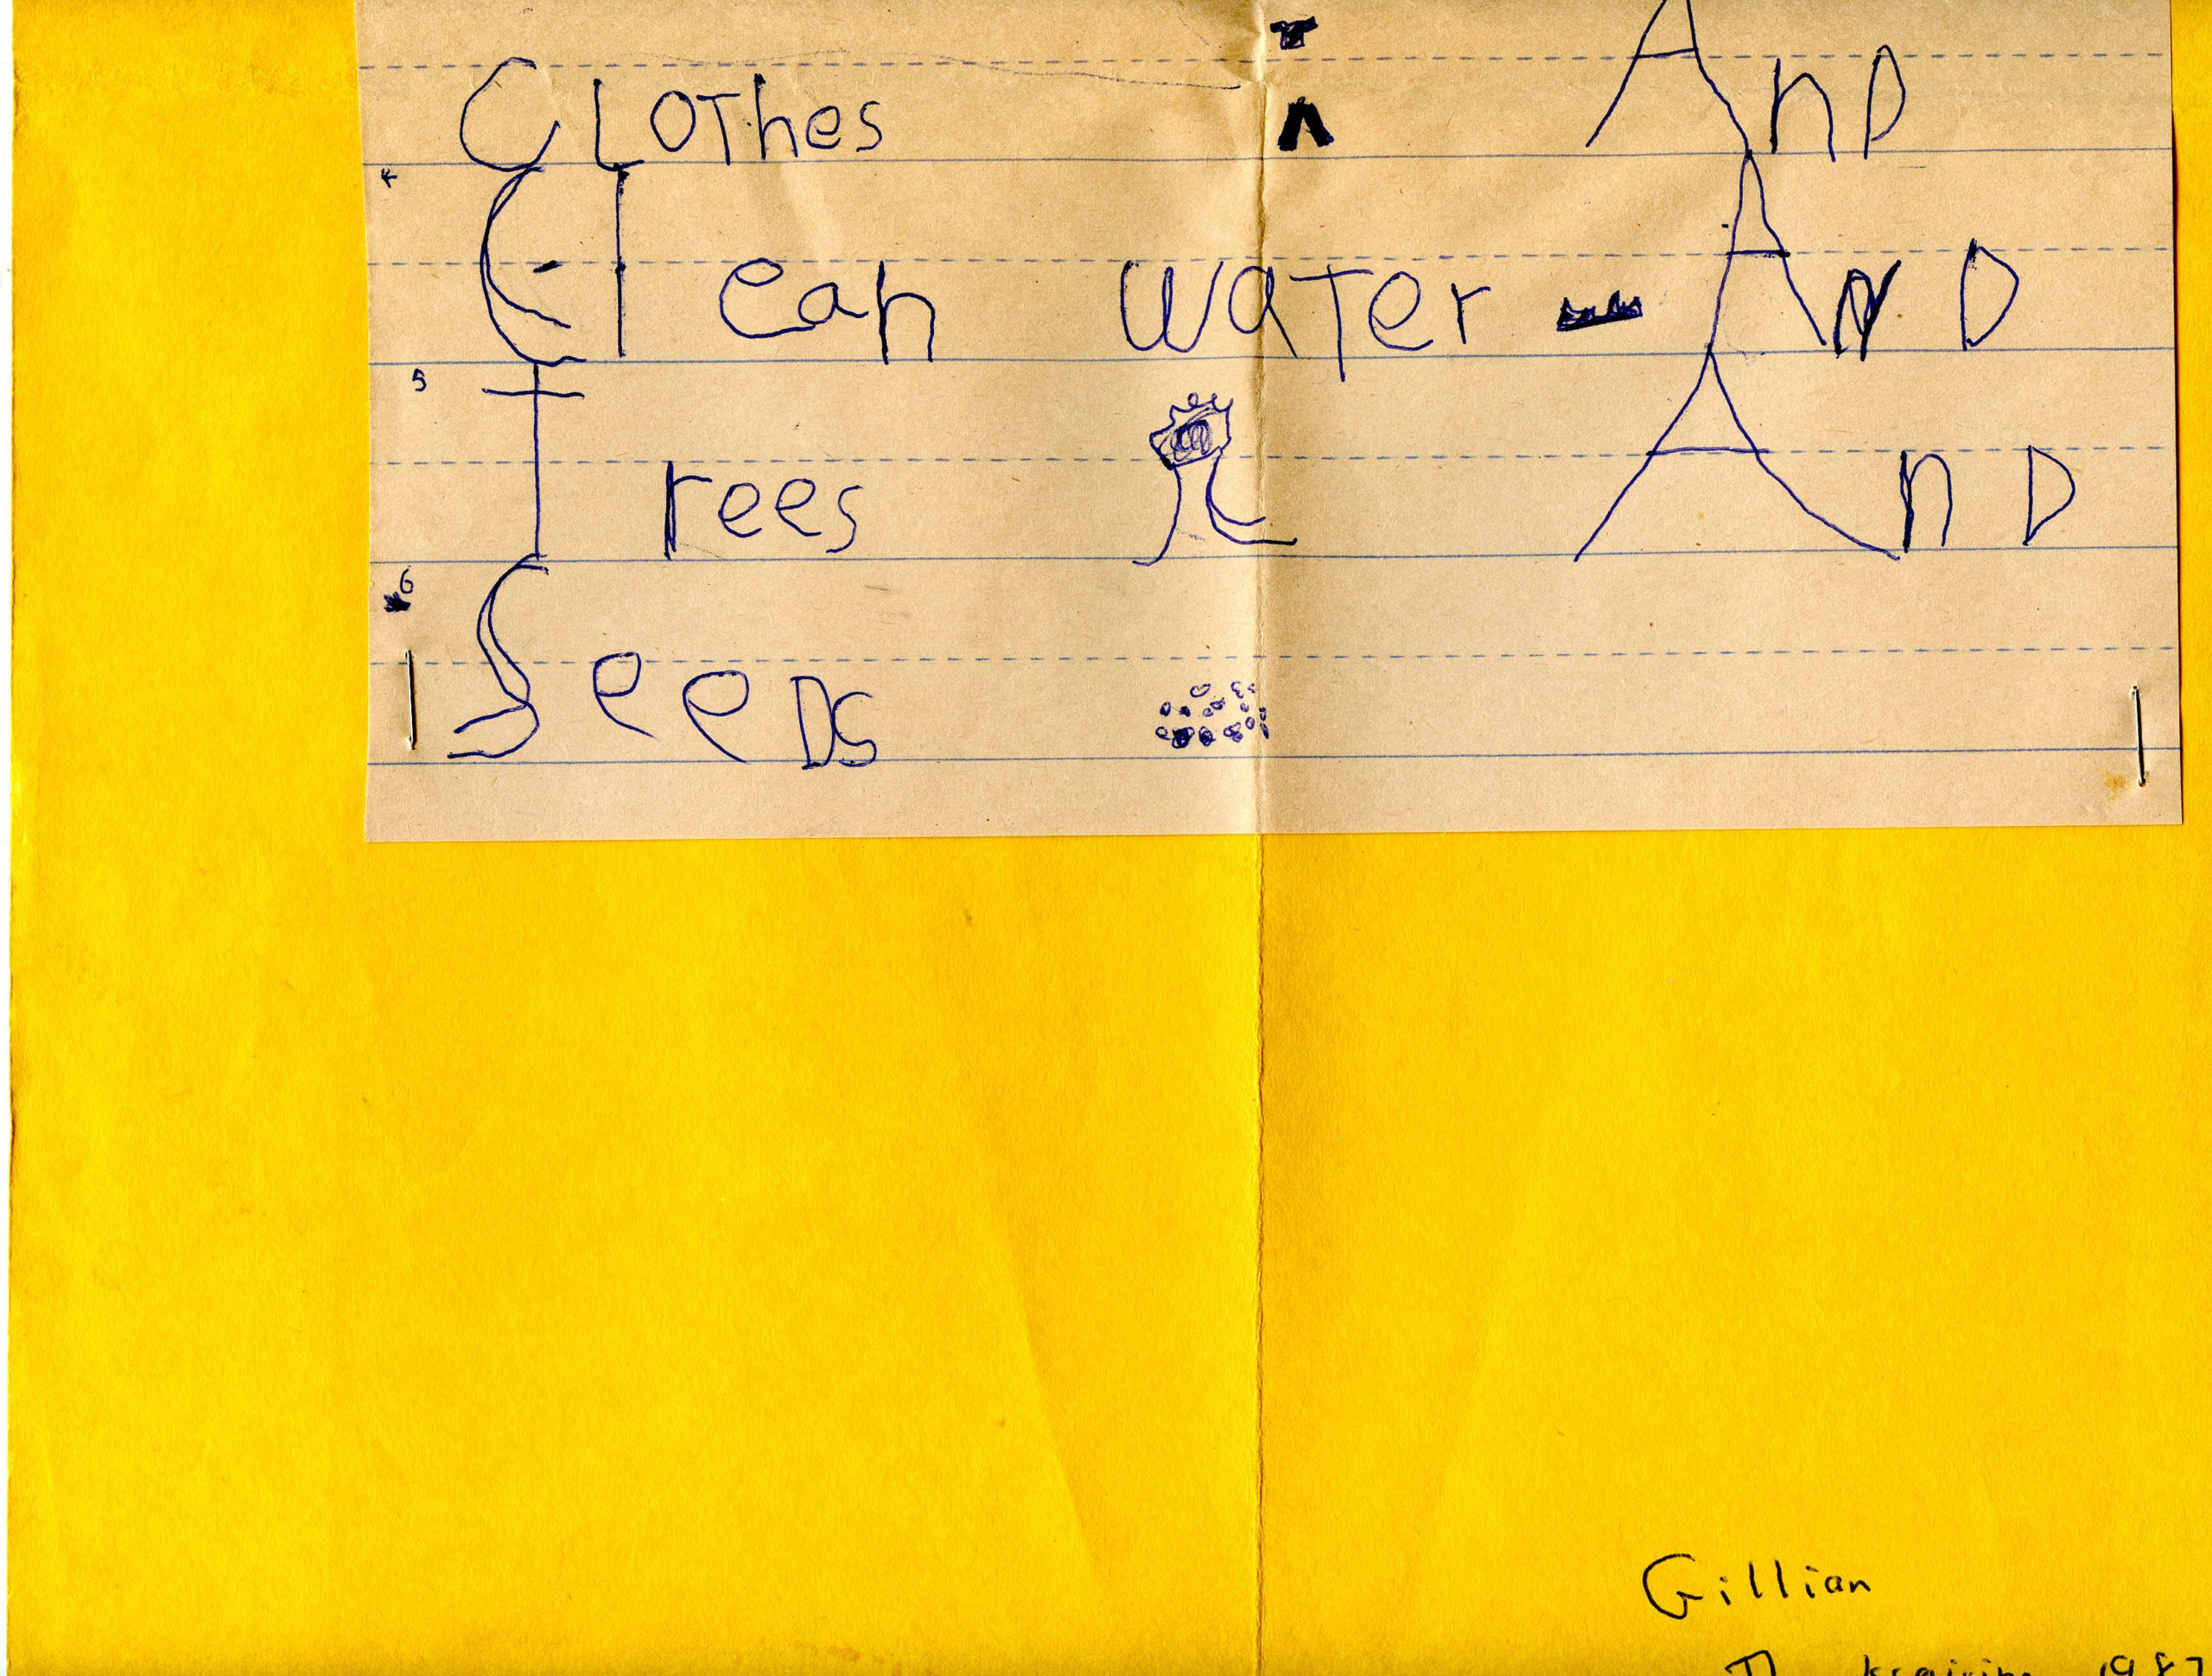 CLOThes AnD
4 Clean water AND
5 Trees AnD
6 SeeDS
Gillian